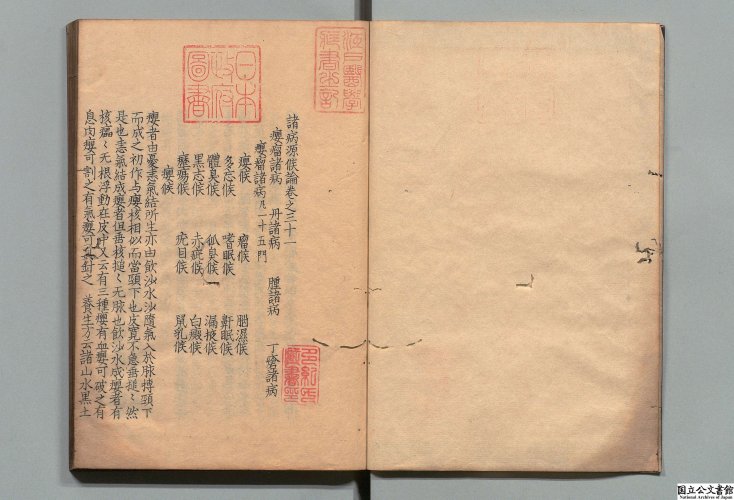 諸病源候論卷之三十一
癭瘤諸病 丹諸病 腫諸病 丁瘡諸病
癭瘤諸病凡一十五門
癭候 瘤候 腦濕候
多忘候 嗜眠候 鼾眠候
體臭候 狐臭候 漏掖候
黑志候 赤疵候 白癜候
癧瘍候 疣目候 鼠乳候
癭候
癭者由憂恚氣結所生亦由飲沙水沙隨氣入於脉搏頸下
而成之初作与癭核相似而當頸下也皮寬不急垂搥〻然
是也恚氣結成癭者但垂核搥〻无脉也飲沙水成癭者有
核〻无根浮動在皮中又云有三種癭有血癭可破之有
息肉癭可割之有氣癭可具針之 養生方云諸山水黑土
江戸醫學藏書之記
日本政府圖書
多紀氏藏書印
国立公文書館
National Archives of Japan